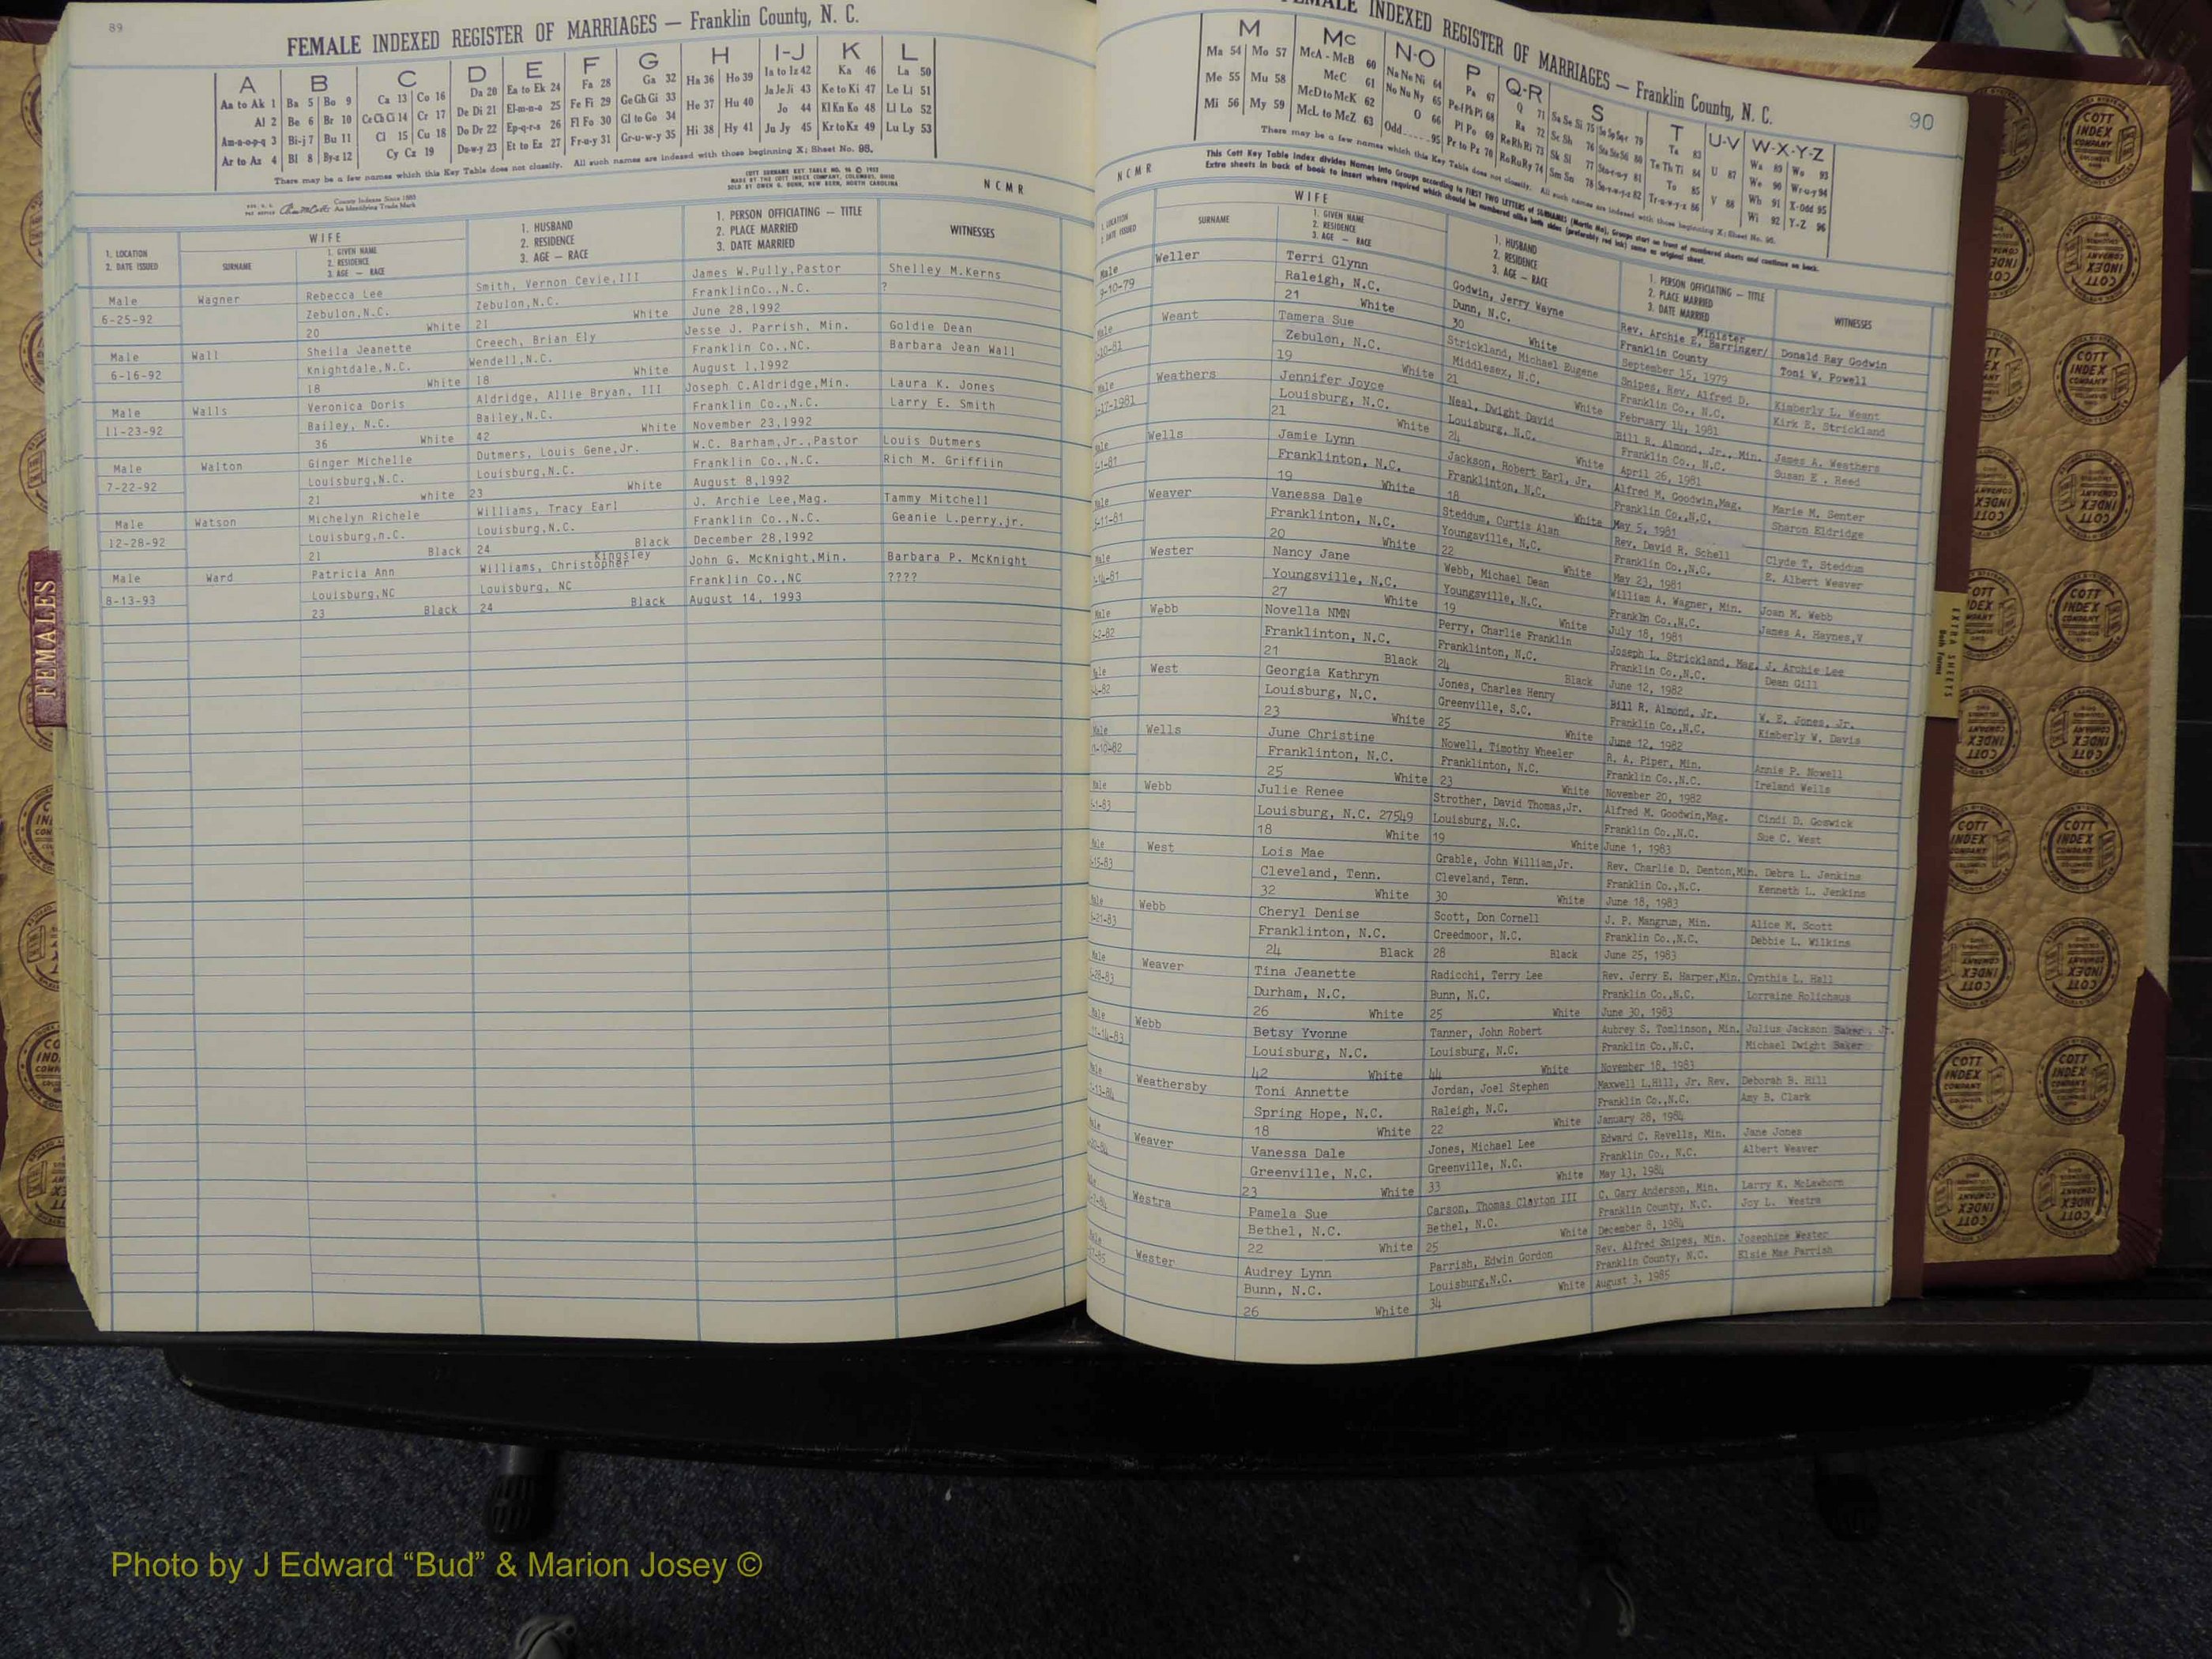 89
FEMALE INDEXED REGISTER OF MARRIAGES — Franklin County, N. C.
A B C D E F G H I-J K L
Aa to Ak 1 Ba 5 Bo 9 Ca 13 Co 16 Da 20 Ea to Ek 24 Fa 28 Ga 32 Ha 36 Ho 39 Ia to Iz 42 Ka 46 La 50
Al 2 Be 6 Br 10 Ce Ch Ci 14 Cr 17 De Di 21 El-m-n-o 25 Fe Fi 29 Ge Gh Gi 33 He 37 Hu 40 Ja Je Ji 43 Ke to Ki 47 Le Li 51
Am-n-o-p-q 3 Bi-j 7 Bu 11 Cl 15 Cu 18 Do Dr 22 Ep-q-r-s 26 Fl Fo 30 Gl to Go 34 Hi 38 Hy 41 Jo 44 Kl Kn Ko 48 Ll Lo 52
Ar to Az 4 Bl 8 By-z 12 Cy Cz 19 Du-w-y 23 Et to Ez 27 Fr-u-y 31 Gr-u-w-y 35 Ju Jy 45 Kr to Kz 49 Lu Ly 53
There may be a few names which this Key Table does not classify. All such names are indexed with those beginning X; Sheet No. 98.
County Indexes Since 1888
An Identifying Trade Mark
MADE BY THE COTT INDEX COMPANY, COLUMBUS, OHIO
SOLD BY OWEN G. DUNN, NEW BERN, NORTH CAROLINA
NCMR
1. LOCATION
2. DATE ISSUED
WIFE
SURNAME
1. GIVEN NAME
2. RESIDENCE
3. AGE — RACE
1. HUSBAND
2. RESIDENCE
3. AGE — RACE
1. PERSON OFFICIATING — TITLE
2. PLACE MARRIED
3. DATE MARRIED
WITNESSES
Male Wagner Rebecca Lee Smith, Vernon Cevie,III James W.Pully,Pastor Shelley M.Kerns
6-25-92 Zebulon,N.C. Zebulon,N.C. FranklinCo.,N.C. ?
20 White 21 White June 28,1992
Male Wall Sheila Jeanette Creech, Brian Ely Jesse J. Parrish, Min. Goldie Dean
6-16-92 Knightdale,N.C. Wendell,N.C. Franklin Co.,NC. Barbara Jean Wall
18 White 18 White August 1,1992
Male Walls Veronica Doris Aldridge, Allie Bryan, III Joseph C.Aldridge,Min. Laura K. Jones
11-23-92 Bailey, N.C. Bailey,N.C. Franklin Co.,N.C. Larry E. Smith
36 White 42 White November 23,1992
Male Walton Ginger Michelle Dutmers, Louis Gene,Jr. W.C. Barham,Jr.,Pastor Louis Dutmers
7-22-92 Louisburg,N.C. Louisburg,N.C. Franklin Co.,N.C. Rich M. Griffiin
21 white 23 White August 8,1992
Male Watson Michelyn Richele Williams, Tracy Earl J. Archie Lee,Mag. Tammy Mitchell
12-28-92 Louisburg,n.C. Louisburg,N.C. Franklin Co.,N.C. Geanie L.perry,jr.
21 Black 24 Black December 28,1992
Male Ward Patricia Ann Williams, Christopher Kingsley John G. McKnight,Min. Barbara P. McKnight
8-13-93 Louisburg,NC Louisburg, NC Franklin Co.,NC ????
23 Black 24 Black August 14, 1993
FEMALES
INDEXED REGISTER OF MARRIAGES — Franklin County, N. C.
90
M Mc N-O P Q-R S T U-V W-X-Y-Z
Ma 54 Mo 57 McA - McB 60 Na Ne Ni 64 Pa 67 Q 71 Sa Se Si 75 Ta 83 U 87 Wa 89 Wo 93
Me 55 Mu 58 McC 61 No Nu Ny 65 Pe-f-Ph Pi 68 Ra 72 Sc Sh 76 Te Th Ti 84 V 88 We 90 Wr-u-y 94
Mi 56 My 59 McD to McK 62 O 66 Pl Po 69 Re Rh Ri 73 Sk Sl 77 To 85 Wh 91 X-Odd 95
McL to McZ 63 Odd 95 Pr to Pz 70 Ro Ru Ry 74 Sm Sn 78 Tr-u-w-y-z 86 Wi 92 Y-Z 96
There may be a few names which this Key Table does not classify. All such names are indexed with those beginning X; Sheet No. 98.
NCMR
This Cott Key Table Index divides Names into Groups according to FIRST TWO LETTERS of SURNAMES
Extra sheets in back of book to insert where required which should be numbered alike both sides (preferably red ink) same as original sheet.
LOCATION
DATE ISSUED
WIFE
SURNAME
1. GIVEN NAME
2. RESIDENCE
3. AGE — RACE
1. HUSBAND
2. RESIDENCE
3. AGE — RACE
1. PERSON OFFICIATING — TITLE
2. PLACE MARRIED
3. DATE MARRIED
WITNESSES
Male Weller Terri Glynn Godwin, Jerry Wayne Rev. Archie E. Barringer/ Minister Donald Ray Godwin
9-10-79 Raleigh, N.C. Dunn, N.C. Franklin County Toni W. Powell
21 White 30 White September 15, 1979
Male Weant Tamera Sue Strickland, Michael Eugene Snipes, Rev. Alfred D. Kimberly L. Weant
10-81 Zebulon, N.C. Middlesex, N.C. Franklin Co., N.C. Kirk E. Strickland
19 White 21 White February 14, 1981
Male Weathers Jennifer Joyce Neal, Dwight David Bill R. Almond, Jr., Min. James A. Weathers
17-1981 Louisburg, N.C. Louisburg, N.C. Franklin Co., N.C. Susan E . Reed
21 White 24 White April 26, 1981
Wells Jamie Lynn Jackson, Robert Earl, Jr. Alfred M. Goodwin,Mag. Marie M. Senter
1-81 Franklinton, N.C. Franklinton, N.C. Franklin Co.,N.C. Sharon Eldridge
19 White 18 White May 5, 1981
Male Weaver Vanessa Dale Steddum, Curtis Alan Rev. David R. Schell Clyde T. Steddum
11-81 Franklinton, N.C. Youngsville, N.C. Franklin Co.,N.C. E. Albert Weaver
20 White 22 White May 23, 1981
Male Wester Nancy Jane Webb, Michael Dean William A. Wagner, Min. Joan M. Webb
14-81 Youngsville, N.C. Youngsville, N.C. Franklin Co.,N.C. James A. Haynes,V
27 White 19 White July 18, 1981
Male Webb Novella NMN Perry, Charlie Franklin Joseph L. Strickland, Mag. J. Archie Lee
2-82 Franklinton, N.C. Franklinton, N.C. Franklin Co.,N.C. Dean Gill
21 Black 24 Black June 12, 1982
Male West Georgia Kathryn Jones, Charles Henry Bill R. Almond, Jr. W. E. Jones, Jr.
-82 Louisburg, N.C. Greenville, S.C. Franklin Co.,N.C. Kimberly W. Davis
23 White 25 White June 12, 1982
Male Wells June Christine Nowell, Timothy Wheeler R. A. Piper, Min. Annie P. Nowell
10-82 Franklinton, N.C. Franklinton, N.C. Franklin Co.,N.C. Ireland Wells
25 White 23 White November 20, 1982
Male Webb Julie Renee Strother, David Thomas,Jr. Alfred M. Goodwin,Mag. Cindi D. Goswick
1-83 Louisburg, N.C. 27549 Louisburg, N.C. Franklin Co.,N.C. Sue C. West
18 White 19 White June 1, 1983
Male West Lois Mae Grable, John William,Jr. Rev. Charlie D. Denton,Min. Debra L. Jenkins
15-83 Cleveland, Tenn. Cleveland, Tenn. Franklin Co.,N.C. Kenneth L. Jenkins
32 White 30 White June 18, 1983
Male Webb Cheryl Denise Scott, Don Cornell J. P. Mangrum, Min. Alice M. Scott
21-83 Franklinton, N.C. Creedmoor, N.C. Franklin Co.,N.C. Debbie L. Wilkins
24 Black 28 Black June 25, 1983
Male Weaver Tina Jeanette Radicchi, Terry Lee Rev. Jerry E. Harper,Min. Cynthia L. Hall
28-83 Durham, N.C. Bunn, N.C. Franklin Co.,N.C. Lorraine Rolichaus
26 White 25 White June 30, 1983
Male Webb Betsy Yvonne Tanner, John Robert Aubrey S. Tomlinson, Min. Julius Jackson Baker, Jr.
11-14-83 Louisburg, N.C. Louisburg, N.C. Franklin Co.,N.C. Michael Dwight Baker
42 White 44 White November 18, 1983
Male Weathersby Toni Annette Jordan, Joel Stephen Maxwell L.Hill, Jr. Rev. Deborah B. Hill
13-84 Spring Hope, N.C. Raleigh, N.C. Franklin Co.,N.C. Amy B. Clark
18 White 22 White January 28, 1984
Weaver Vanessa Dale Jones, Michael Lee Edward C. Revells, Min. Jane Jones
Greenville, N.C. Greenville, N.C. Franklin Co., N.C. Albert Weaver
23 White 33 White May 13, 1984
Westra Pamela Sue Carson, Thomas Clayton III C. Gary Anderson, Min. Larry K. McLawhorn
Bethel, N.C. Bethel, N.C. Franklin County, N.C. Joy L. Westra
22 White 25 White December 8, 1984
Wester Audrey Lynn Parrish, Edwin Gordon Rev. Alfred Snipes, Min. Josephine Wester
Bunn, N.C. Louisburg,N.C. Franklin County, N.C. Elsie Mae Parrish
26 White 34 White August 3, 1985
EXTRA SHEETS
COTT INDEX COMPANY
Photo by J Edward “Bud” & Marion Josey ©